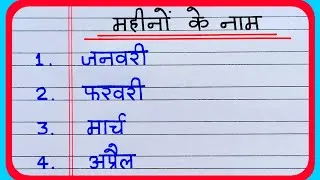 महीनों के नाम
1. जनवरी
2. फरवरी
3. मार्च
4. अप्रैल